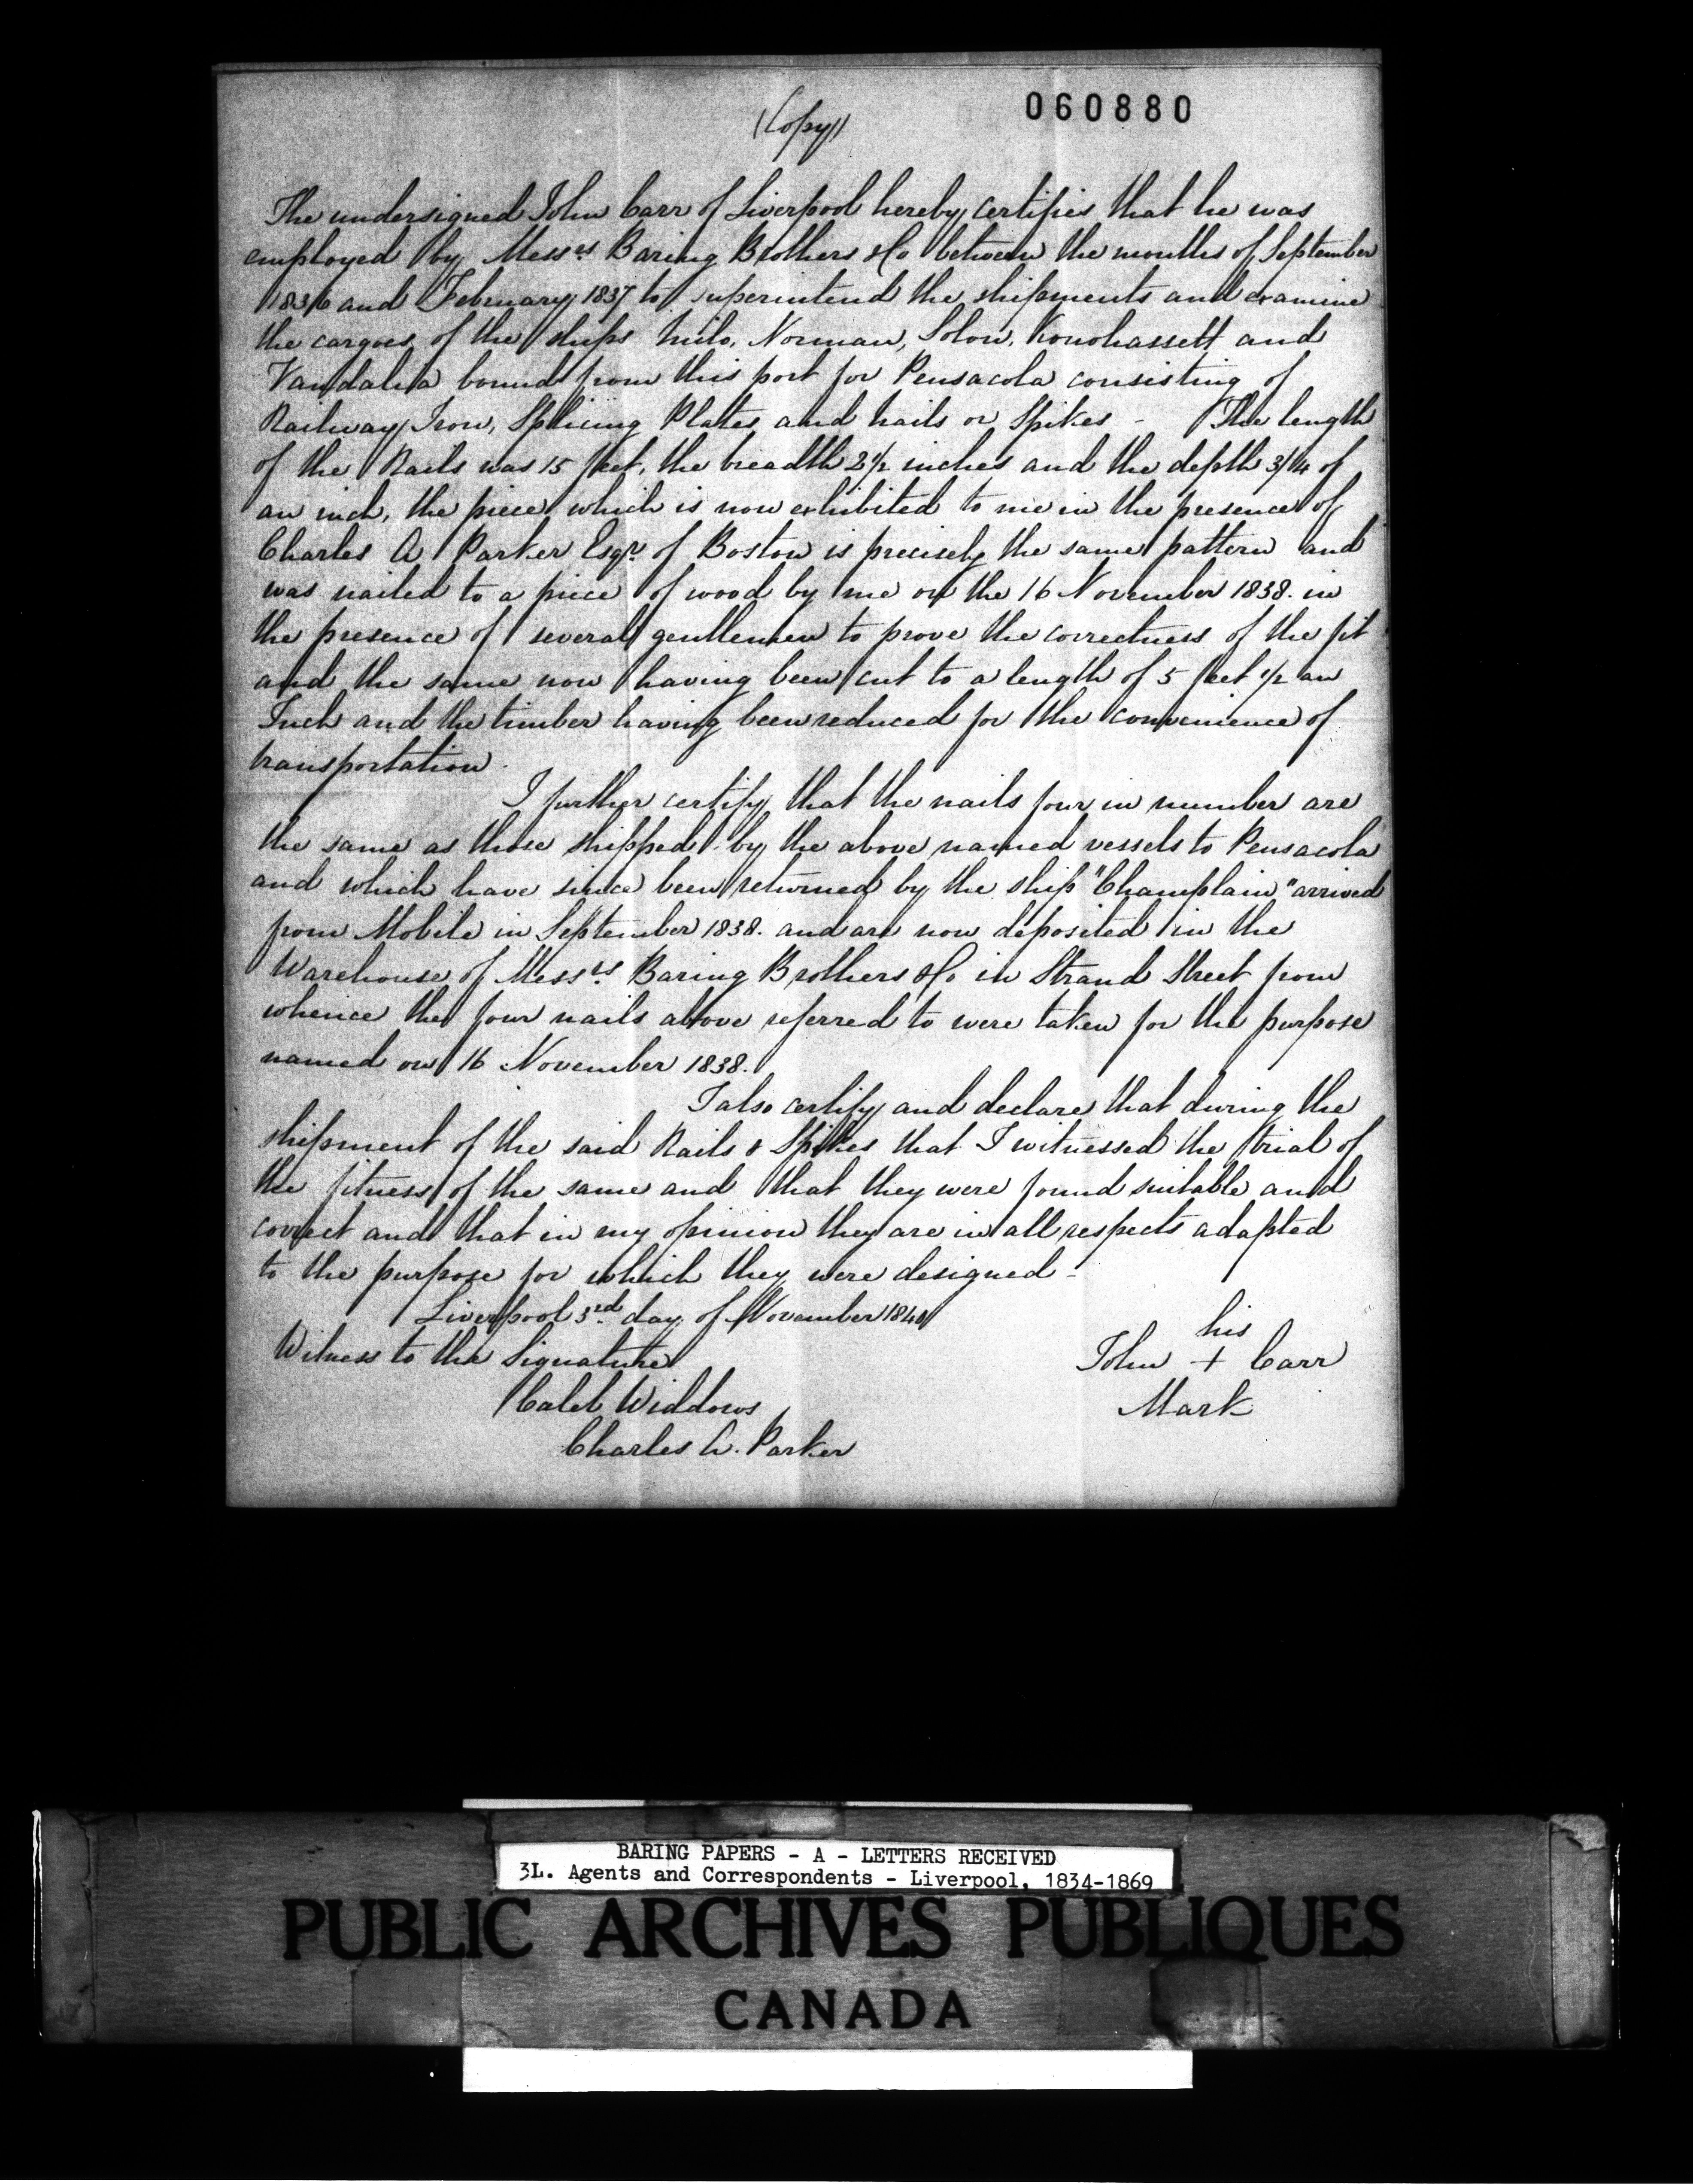 (Copy)
060880
The undersigned John Carr of Liverpool hereby certifies that he was
employed by Messrs Baring Brothers & Co between the months of September
1836 and February 1837 to superintend the shipments and examine
the cargoes of the ships Milo, Norman, Solon, Konohassett and
Vandalia bound from this port for Pensacola consisting of
Railway Iron, Splicing Plates and nails or Spikes - The length
of the Rails was 15 feet, the breadth 2 1/2 inches and the depth 3/4 of
an inch, the piece which is now exhibited to me in the presence of
Charles A Parker Esqr. of Boston is precisely the same pattern and
was nailed to a piece of wood by me on the 16 November 1838. in
the presence of several gentlemen to prove the correctness of the fit
and the same now having been cut to a length of 5 feet 1/2 an
Inch and the timber having been reduced for the convenience of
transportation.
I further certify that the nails four in number are
the same as those shipped by the above named vessels to Pensacola
and which have since been returned by the ship "Champlain" arrived
from Mobile in September 1838. and are now deposited in the
Warehouse of Messrs. Baring Brothers & Co in Strand Street from
whence the four nails above referred to were taken for the purpose
named on 16 November 1838.
I also certify and declare that during the
shipment of the said Rails & Spikes that I witnessed the trial of
the fitness of the same and that they were found suitable and
correct and that in my opinion they are in all respects adapted
to the purpose for which they were designed -
Liverpool 3rd. day of November 1840
his
Witness to the Signature
John + Carr
Caleb Widdows
Mark
Charles A. Parker
BARING PAPERS - A - LETTERS RECEIVED
3L. Agents and Correspondents - Liverpool, 1834-1869
PUBLIC ARCHIVES PUBLIQUES
CANADA